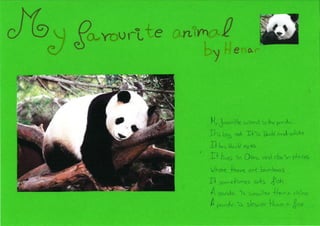 My favourite animal
by Henar
My favourite animal is the panda.
It's big and It's black and white
It has black eyes
It lives in China and also in places
where there are bamboos
It sometimes eats fish
A panda is smaller than a rhino
A panda is slower than a fox